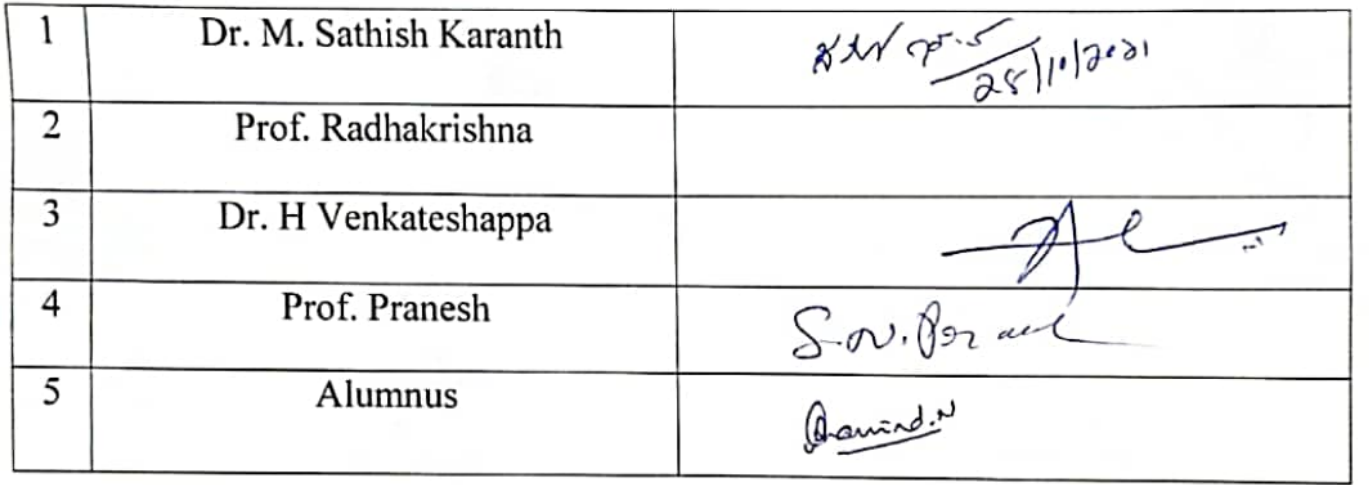 1 Dr. M. Sathish Karanth
28/10/2021
2 Prof. Radhakrishna
3 Dr. H Venkateshappa
4 Prof. Pranesh
S.N.
5 Alumnus